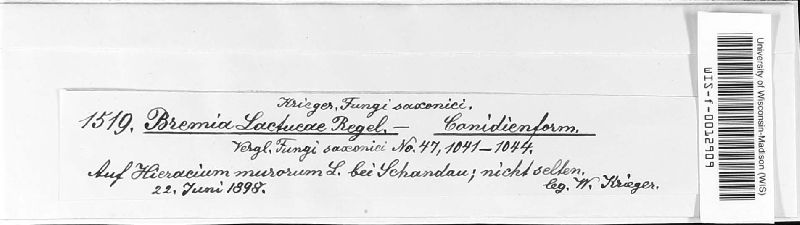 Krieger, Fungi saxonici.
1519. Bremia Lactucae Regel. — Conidienform.
Vergl. Fungi saxonici No. 47, 1041—1044.
Auf Hieracium murorum L. bei Schandau; nicht selten.
22. Juni 1898. leg. W. Krieger.
University of Wisconsin-Madison (WIS)
WIS-f-0012909